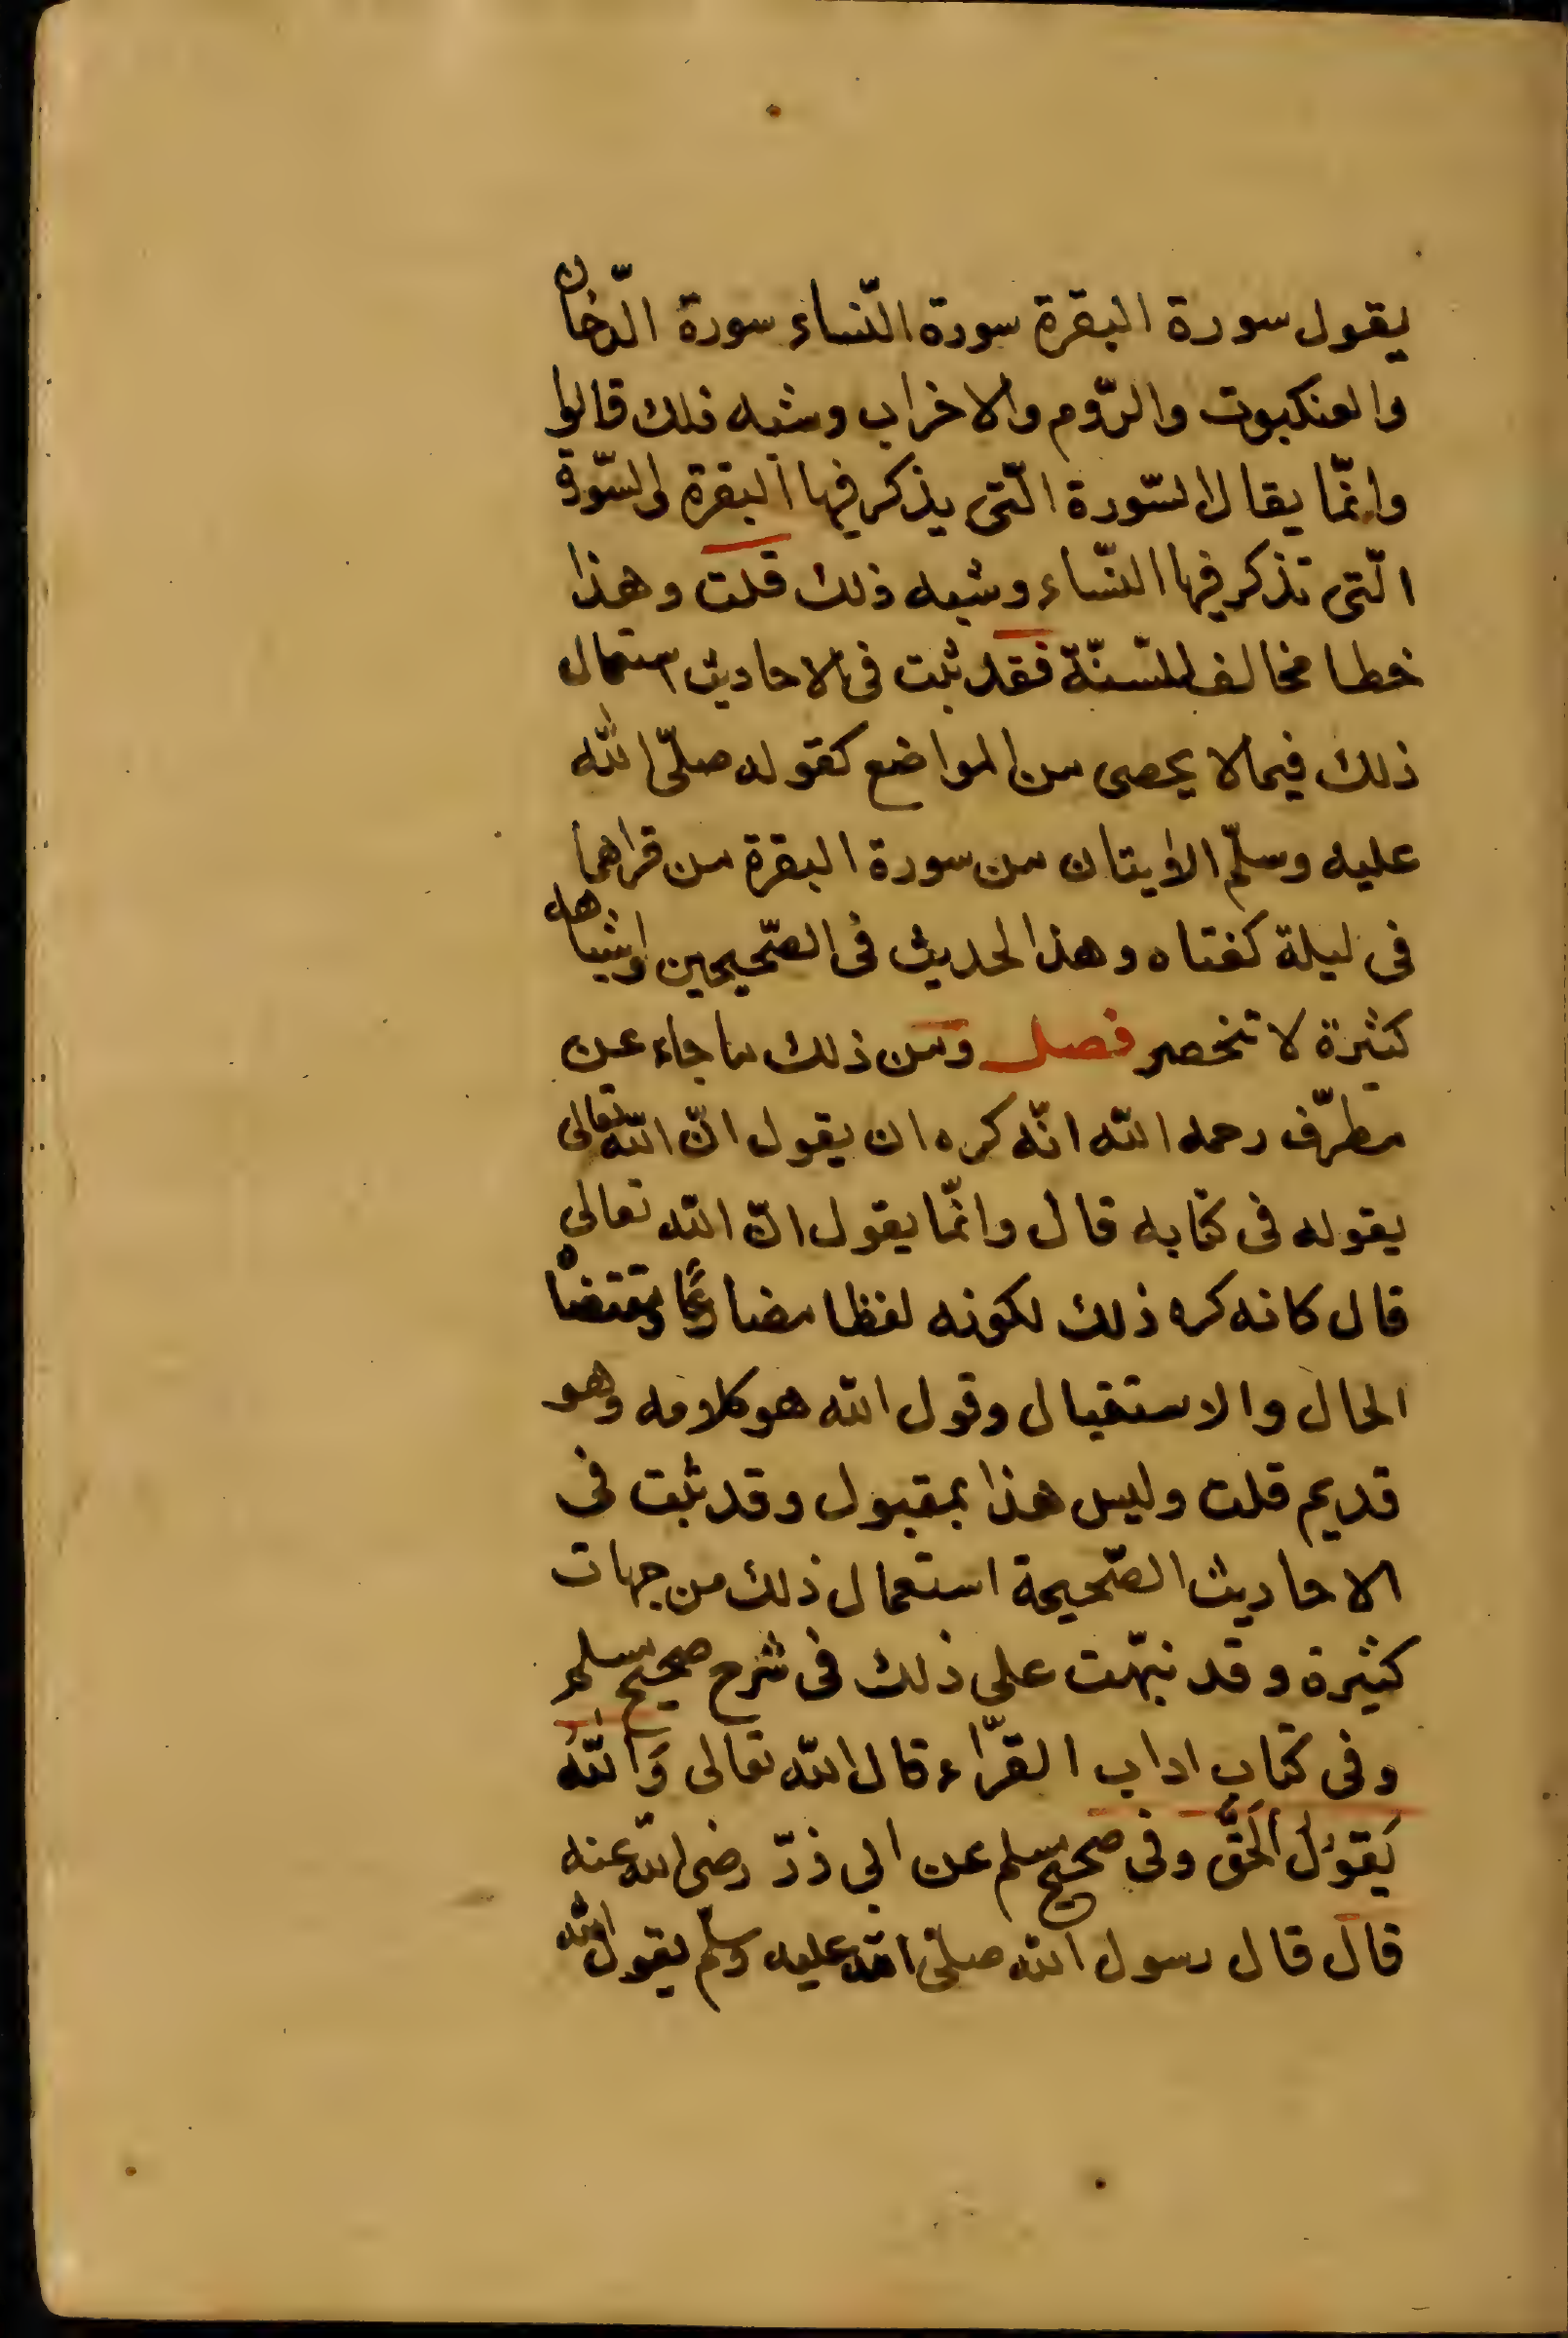 يقول سورة البقرة سورة النّساء سورة الدّخان
والعنكبوت والرّوم والاخراب وشبه ذلك قالوا
وانّما يقال السّورة الّتى يذكر فيها البقرة والسّورة
الّتى تذكر فيها النّساء وشبه ذلك قلت وهذا
خطا مخالف للسّنّة فقد ثبت فى الاحاديث استعمال
ذلك فيما لا يحصى من المواضع كقوله صلّى الله
عليه وسلّم الايتان من سورة البقرة من قراهما
فى ليلة كفتاه وهذا الحديث فى الصّحيحين واشباهه
كثيرة لا تنحصر فصل ومن ذلك ما جاء عن
مطرّف رحمه الله انّه كره ان يقول انّ الله تعالى
يقوله فى كتابه قال وانّما يقول انّ الله تعالى
قال كانه كره ذلك لكونه لفظا مضارعًا ومقتضاه
الحال والاستقبال وقول الله هو كلامه وهو
قديم قلت وليس هذا بمقبول وقد ثبت فى
الاحاديث الصّحيحة استعمال ذلك من جهات
كثيرة وقد نبّهت على ذلك فى شرح صحيح مسلم
وفى كتاب اداب القرّاء قال الله تعالى وَاللهُ
يَقُوْلُ الْحَقَّ وفى صحيح مسلم عن ابى ذرّ رضى الله عنه
قال قال رسول الله صلّى الله عليه وسلّم يقول الله